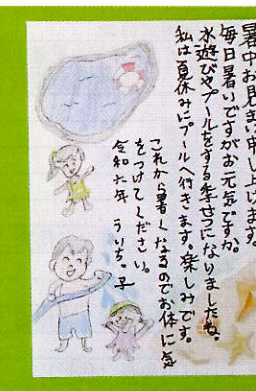 暑中お見まい申し上げます。
毎日暑いですがお元気ですか。
水遊びやプールをする季せつになりましたね。
私は夏休みにプールへ行きます。楽しみです。
これから暑くなるのでお体に気
をつけてください。
令和六年